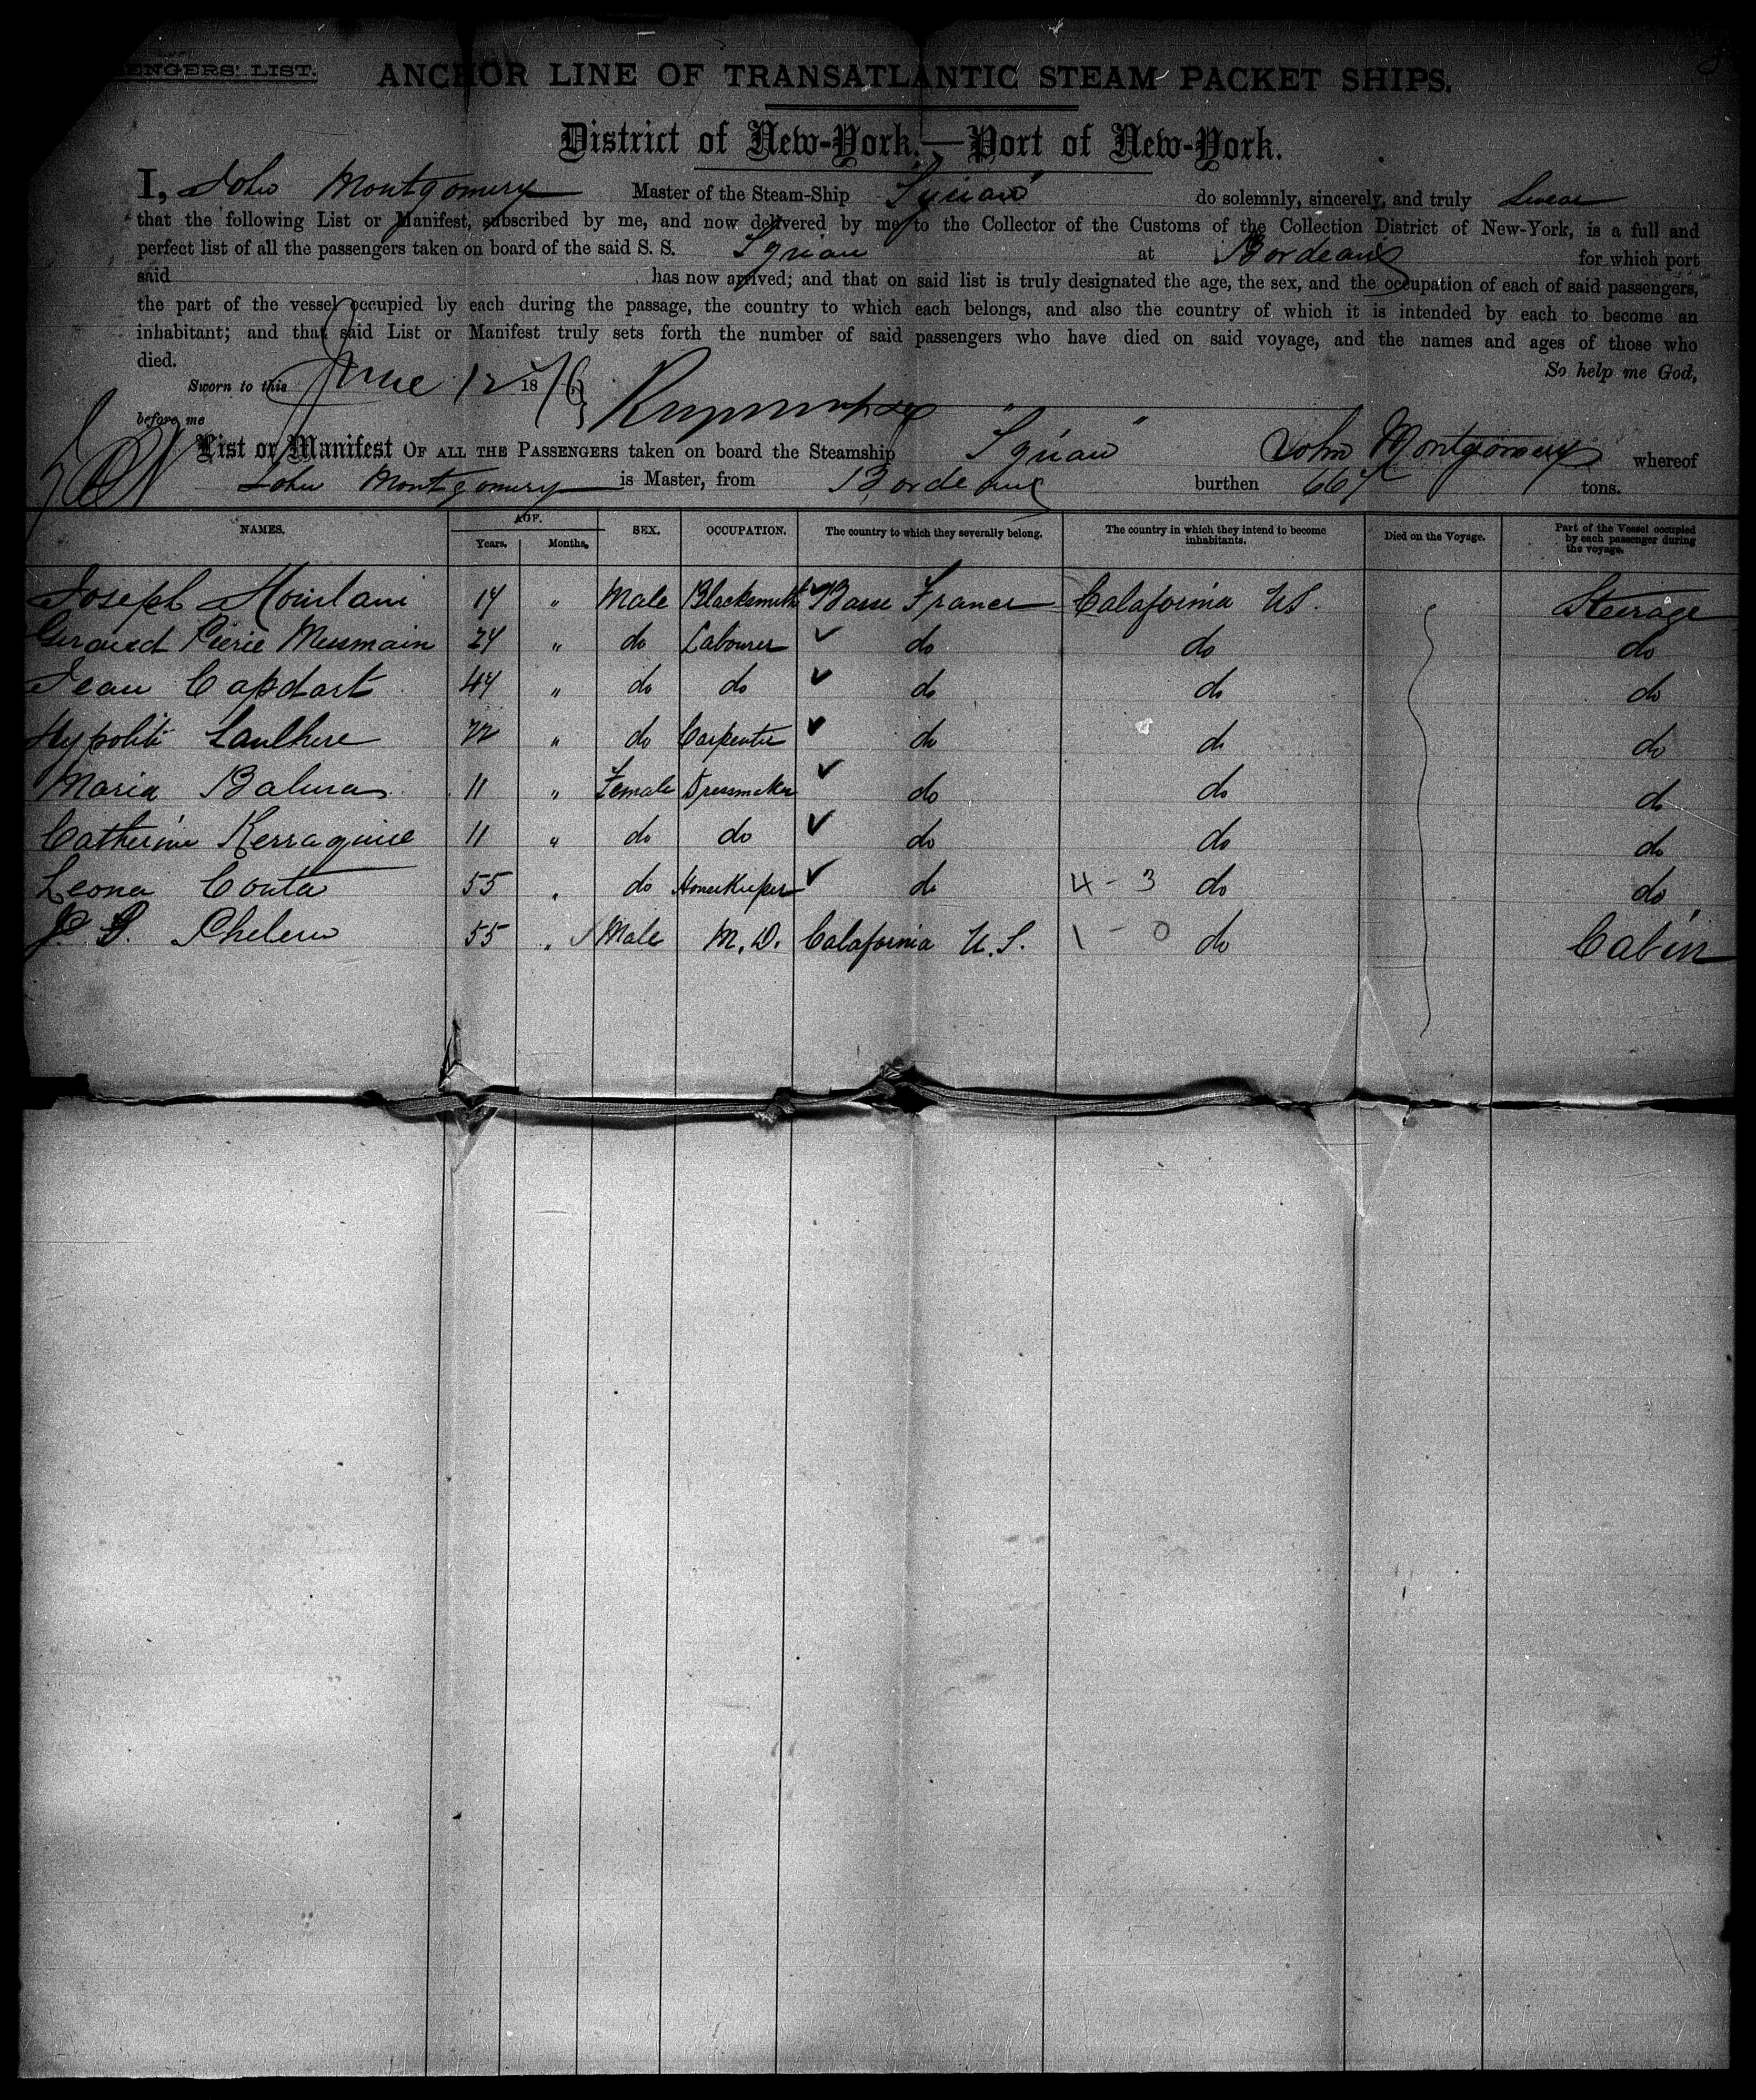 ENGERS' LIST.
ANCHOR LINE OF TRANSATLANTIC STEAM PACKET SHIPS.
District of New-York,—Port of New-York.
I, John Montgomery Master of the Steam-Ship do solemnly, sincerely, and truly Swear
that the following List or Manifest, subscribed by me, and now delivered by me to the Collector of the Customs of the Collection District of New-York, is a full and
perfect list of all the passengers taken on board of the said S. S. at Bordeaux for which port
said has now arrived; and that on said list is truly designated the age, the sex, and the occupation of each of said passengers,
the part of the vessel occupied by each during the passage, the country to which each belongs, and also the country of which it is intended by each to become an
inhabitant; and that said List or Manifest truly sets forth the number of said passengers who have died on said voyage, and the names and ages of those who
died. So help me God,
Sworn to this June 12 1876
before me
List or Manifest OF ALL THE PASSENGERS taken on board the Steamship John Montgomery whereof
John Montgomery is Master, from Bordeaux burthen 667 tons.
NAMES. AGE. Years. Months. SEX. OCCUPATION. The country to which they severally belong. The country in which they intend to become inhabitants. Died on the Voyage. Part of the Vessel occupied by each passenger during the voyage.
Joseph 14 " Male Blacksmith France Calafornia US. Steerage
Pierie 24 " do Labourer do do do
Jean Capdart 44 " do do do do do
Hypolite Laulhere 22 " do Carpenter do do do
Maria 11 " Female Dressmaker do do do
Catherine 11 " do do do do do
Leona Couta 55 " do Housekeeper do 4 - 3 do do
55 " Male M.D. Calafornia U.S. 1 - 0 do Cabin